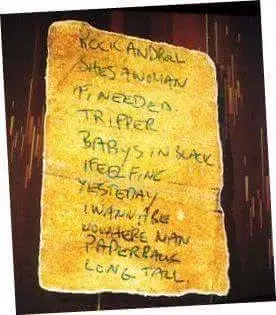 ROCK AND ROLL
SHES A WOMAN
IF, NEEDED.
TRIPPER
BABYS IN BLACK
I FEEL FINE
YESTEDAY
I WANNA BE
NOWHERE MAN
PAPERBACK
LONG TALL.